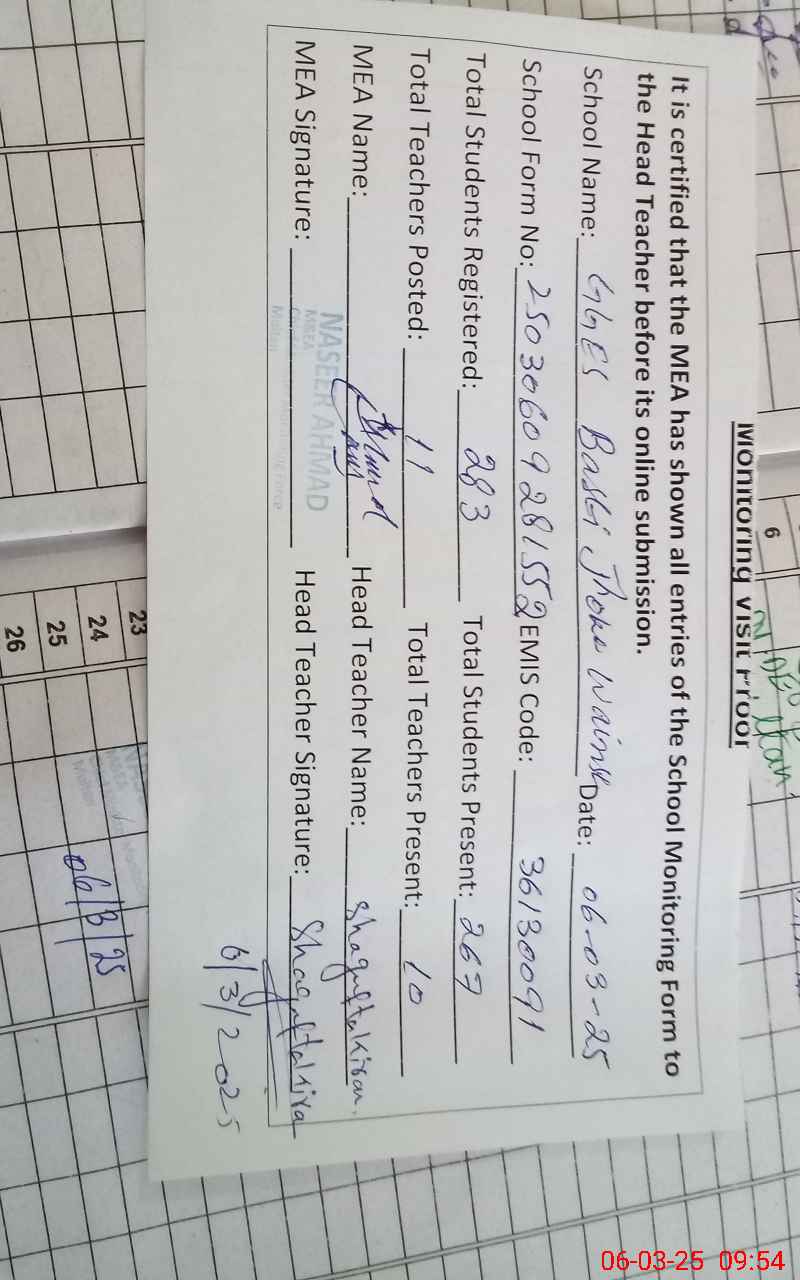 Monitoring Visit Proof
It is certified that the MEA has shown all entries of the School Monitoring Form to
the Head Teacher before its online submission.
School Name: GGES Basti Jhoke Wains Date: 06-03-25
School Form No: 25030609281552 EMIS Code: 36130091
Total Students Registered: 283 Total Students Present: 267
Total Teachers Posted: 11 Total Teachers Present: 10
MEA Name: Head Teacher Name: Shagufta Kiran.
NASEER AHMAD
MEA
MEA Signature: Head Teacher Signature: Shagufta Kira
Multan
6/3/2025
6
23
24
25
26
06/3/25
06-03-25 09:54